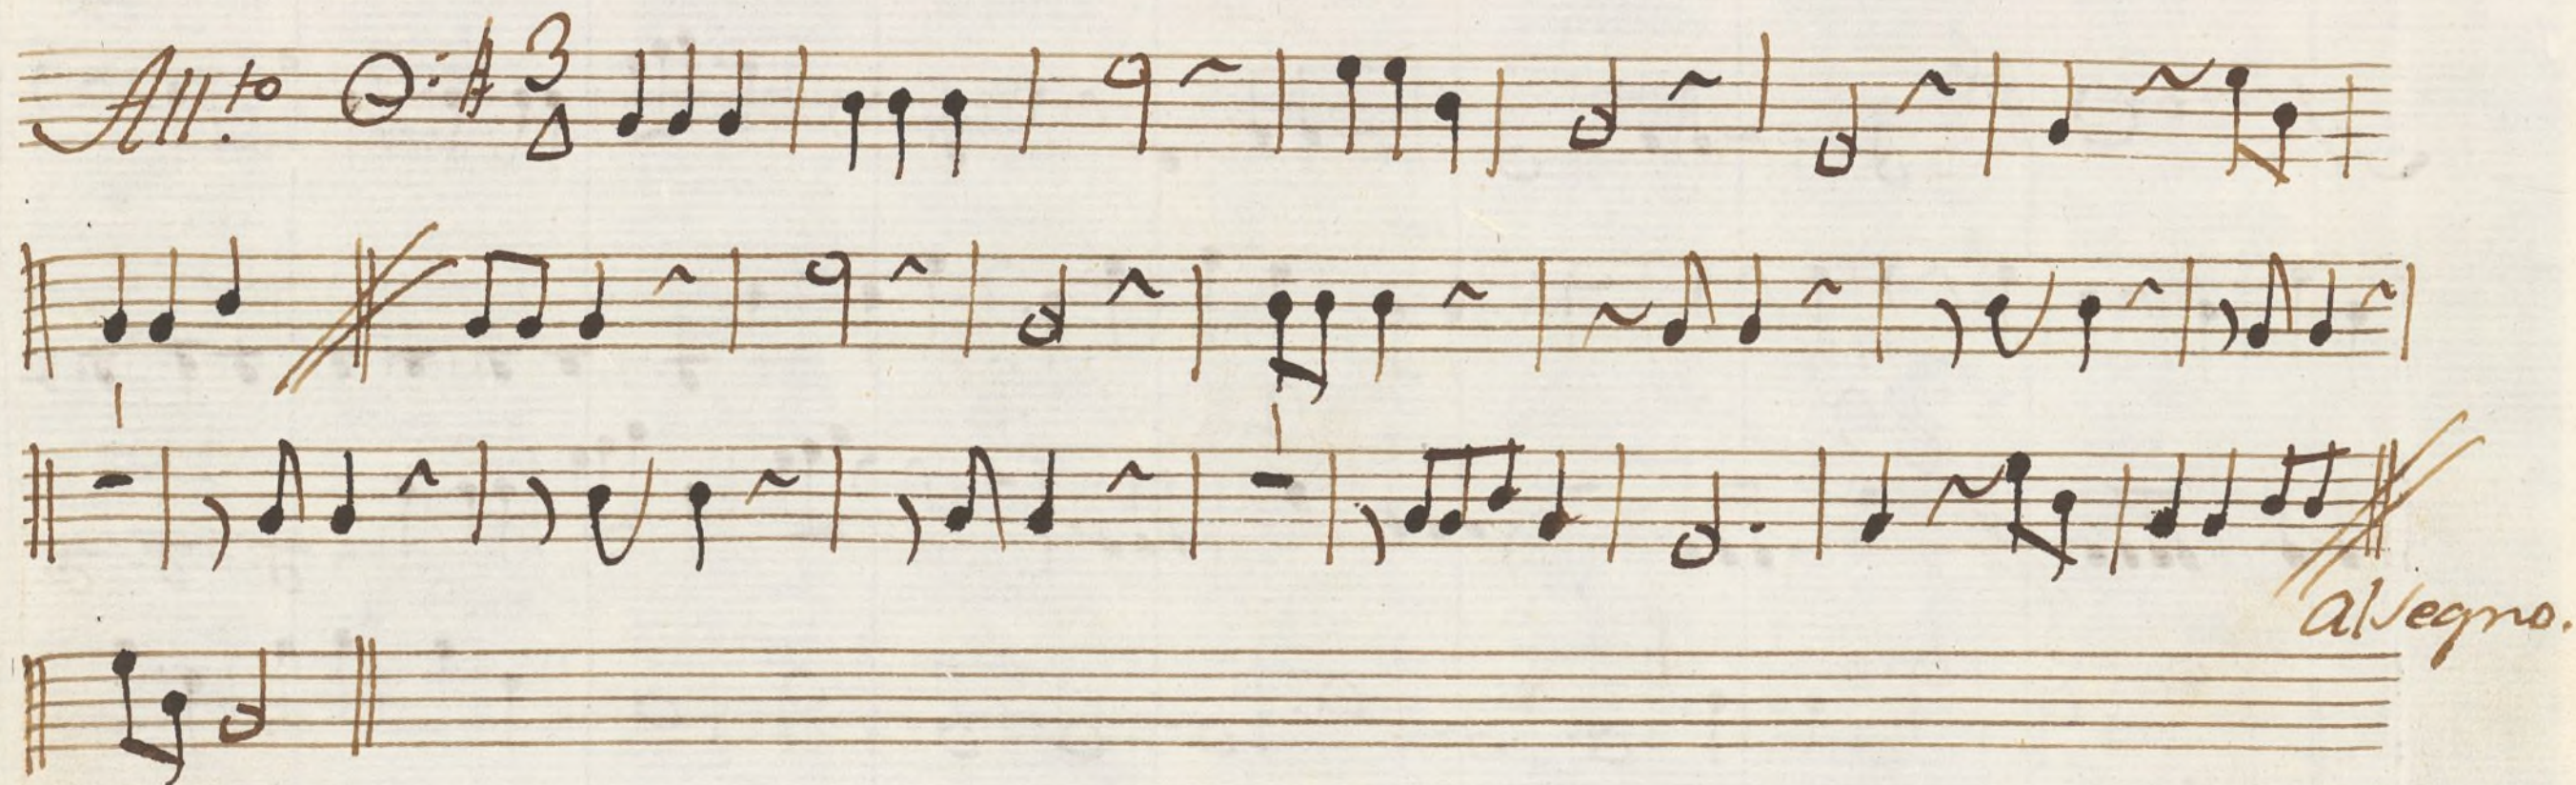 All.to 3
4
1
1
al Segno.